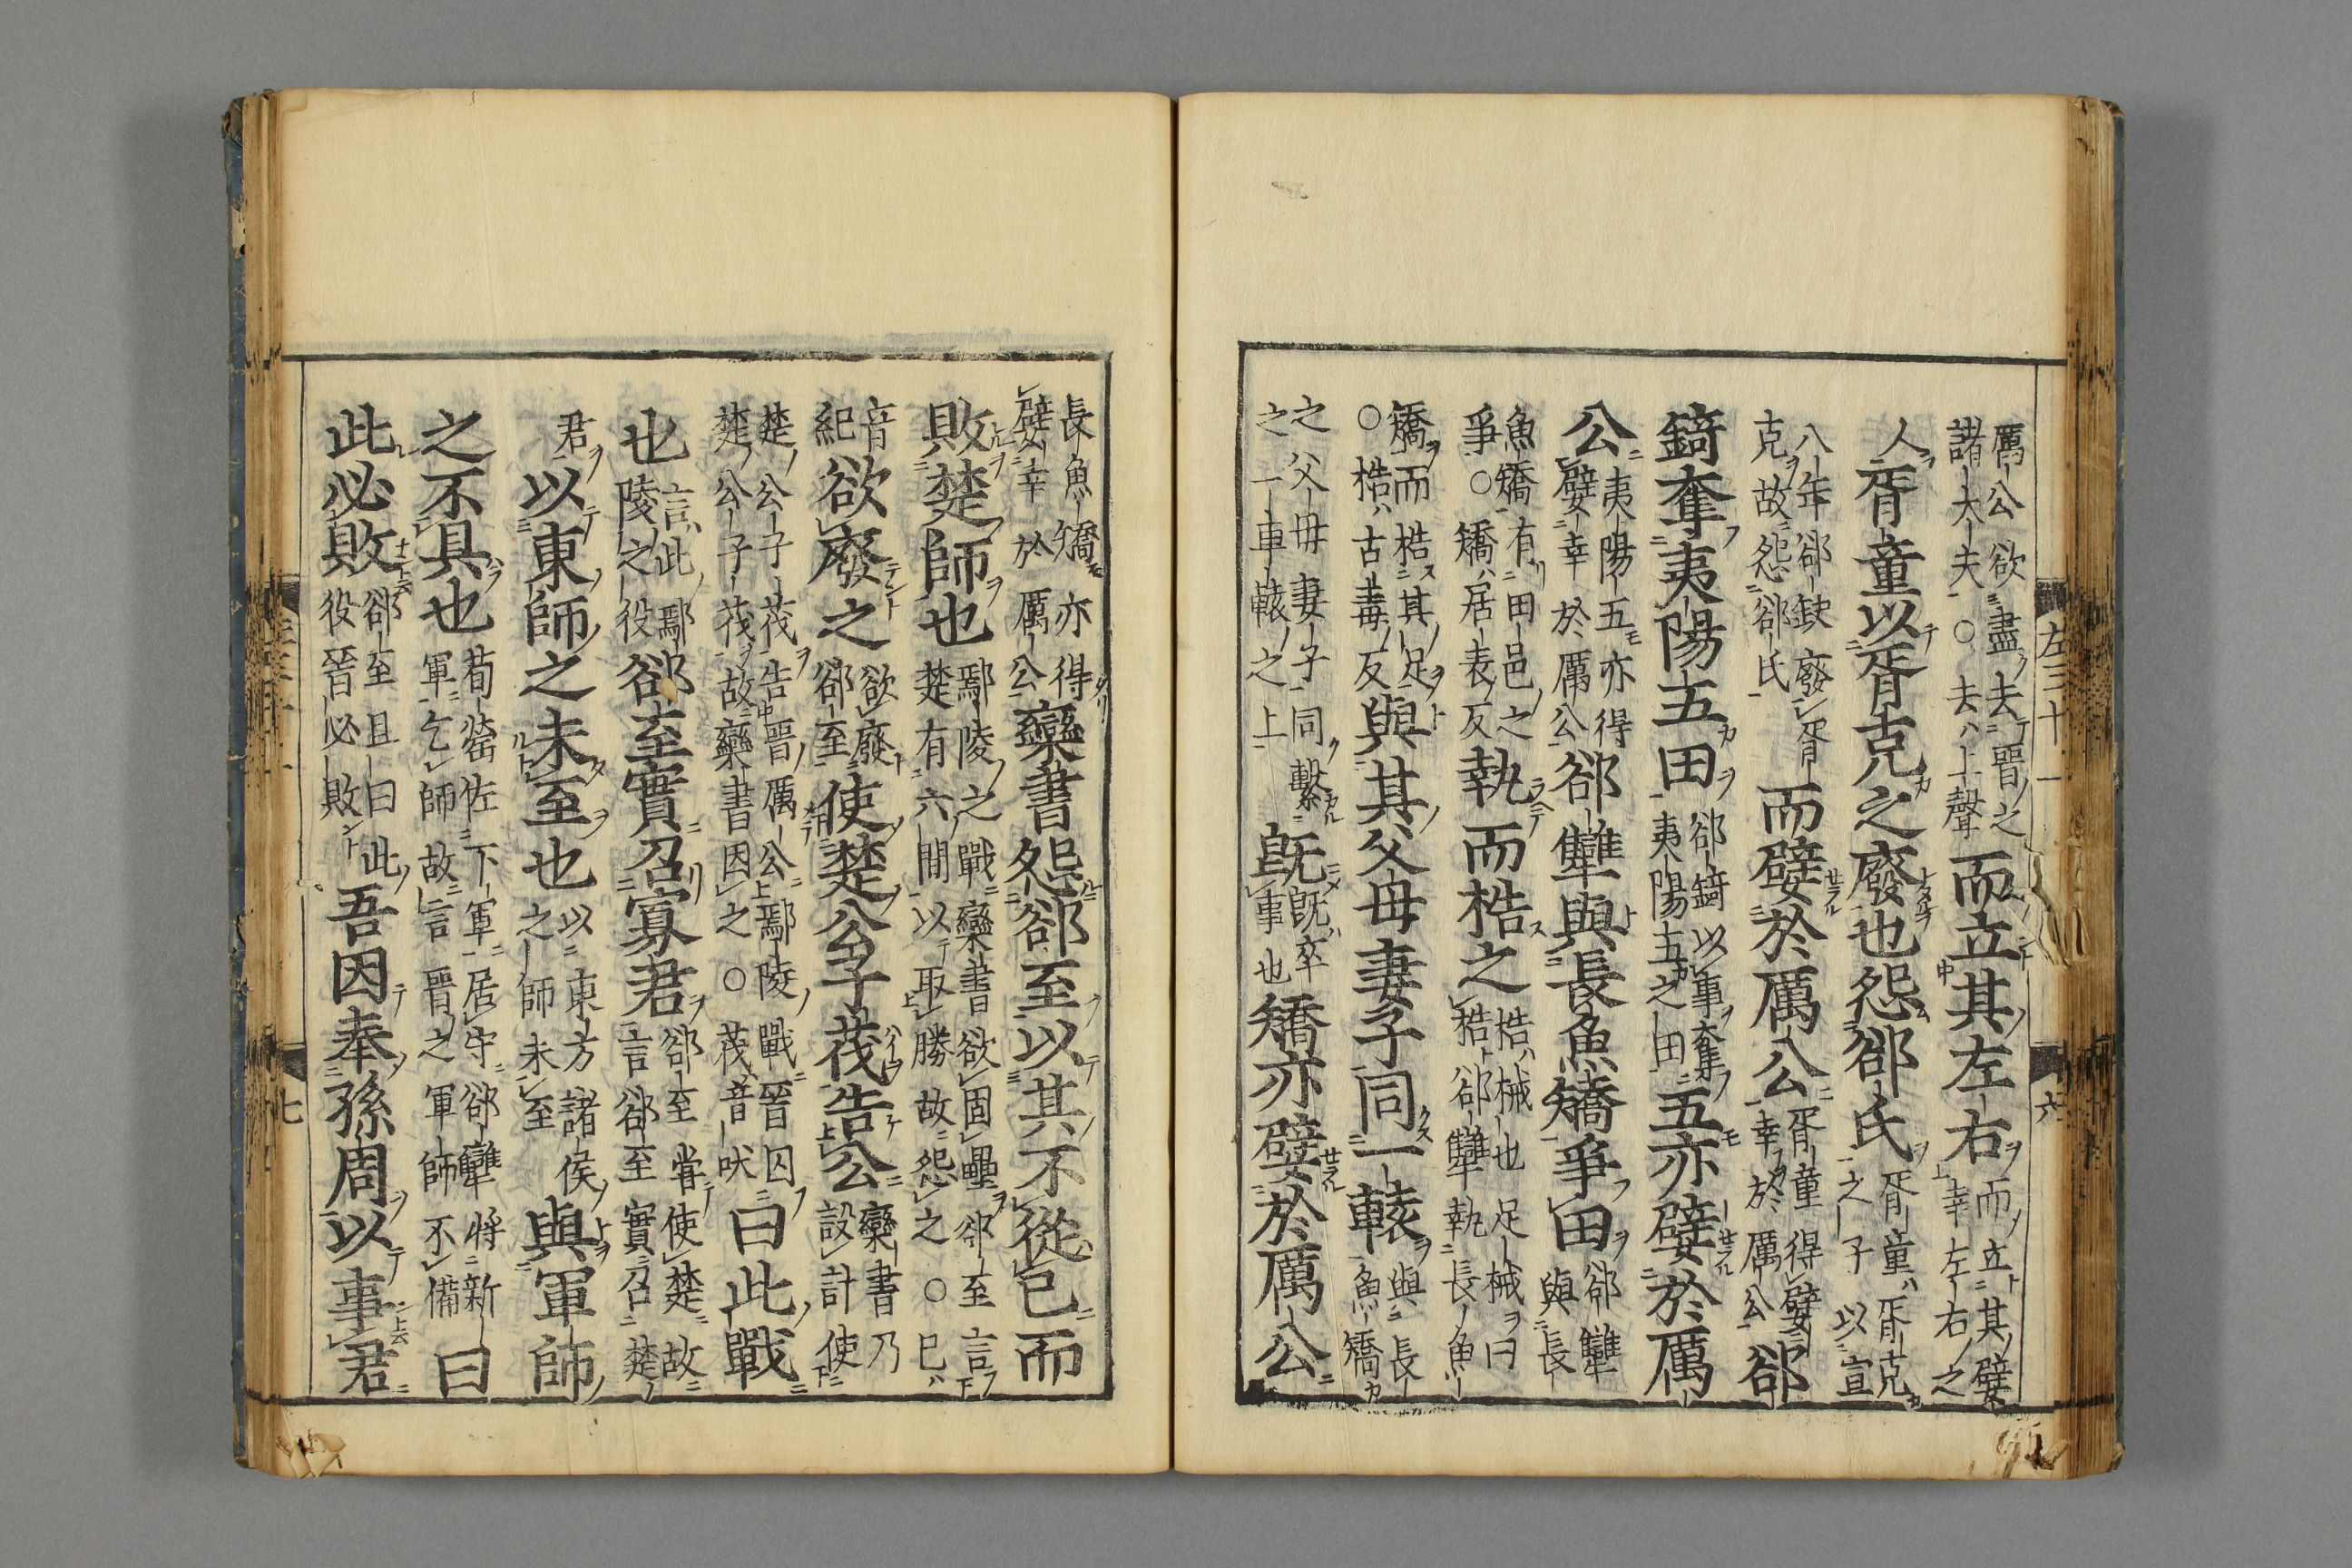 左三十一 六
厲公欲盡去晉之諸大夫○去上聲而立其左右而立其嬖幸左右之
人胥童以胥克之廢也怨郤氏胥童胥克之子以宣
八年郤缺廢胥克故怨郤氏而嬖於厲公胥童得嬖幸於厲公郤
錡奪夷陽五田郤錡以事奪夷陽五之田五亦嬖於厲
公夷陽五亦得嬖幸於厲公郤犨與長魚矯爭田郤犨與長
魚矯有田邑之爭○矯居表反執而梏之梏械也足械曰桎郤犨執長魚
矯而梏其足○梏古毒反與其父母妻子同一轅與長魚矯
之父母妻子同繫之一車轅之上既既卒事也矯亦嬖於厲公
長魚矯亦得嬖幸於厲公欒書怨郤至以其不從己而
敗楚師也鄢陵之戰欒書欲固壘郤至言楚有六間以取勝故怨之○己
音紀欲廢之欲廢郤至使楚公子茷告公欒書乃設計使
楚公子茷告晉厲公鄢陵戰晉囚楚公子茷故欒書因之○茷音吠曰此戰
也言此鄢陵之役郤至實召寡君郤至嘗使楚故言郤至實召楚
君以東師之未至也以東方諸侯之師未至與軍師
之不具也荀罃佐下軍居守郤犨將新軍乞師故言晉之軍師不備曰
此必敗郤至且曰此役晉必敗吾因奉孫周以事君
七